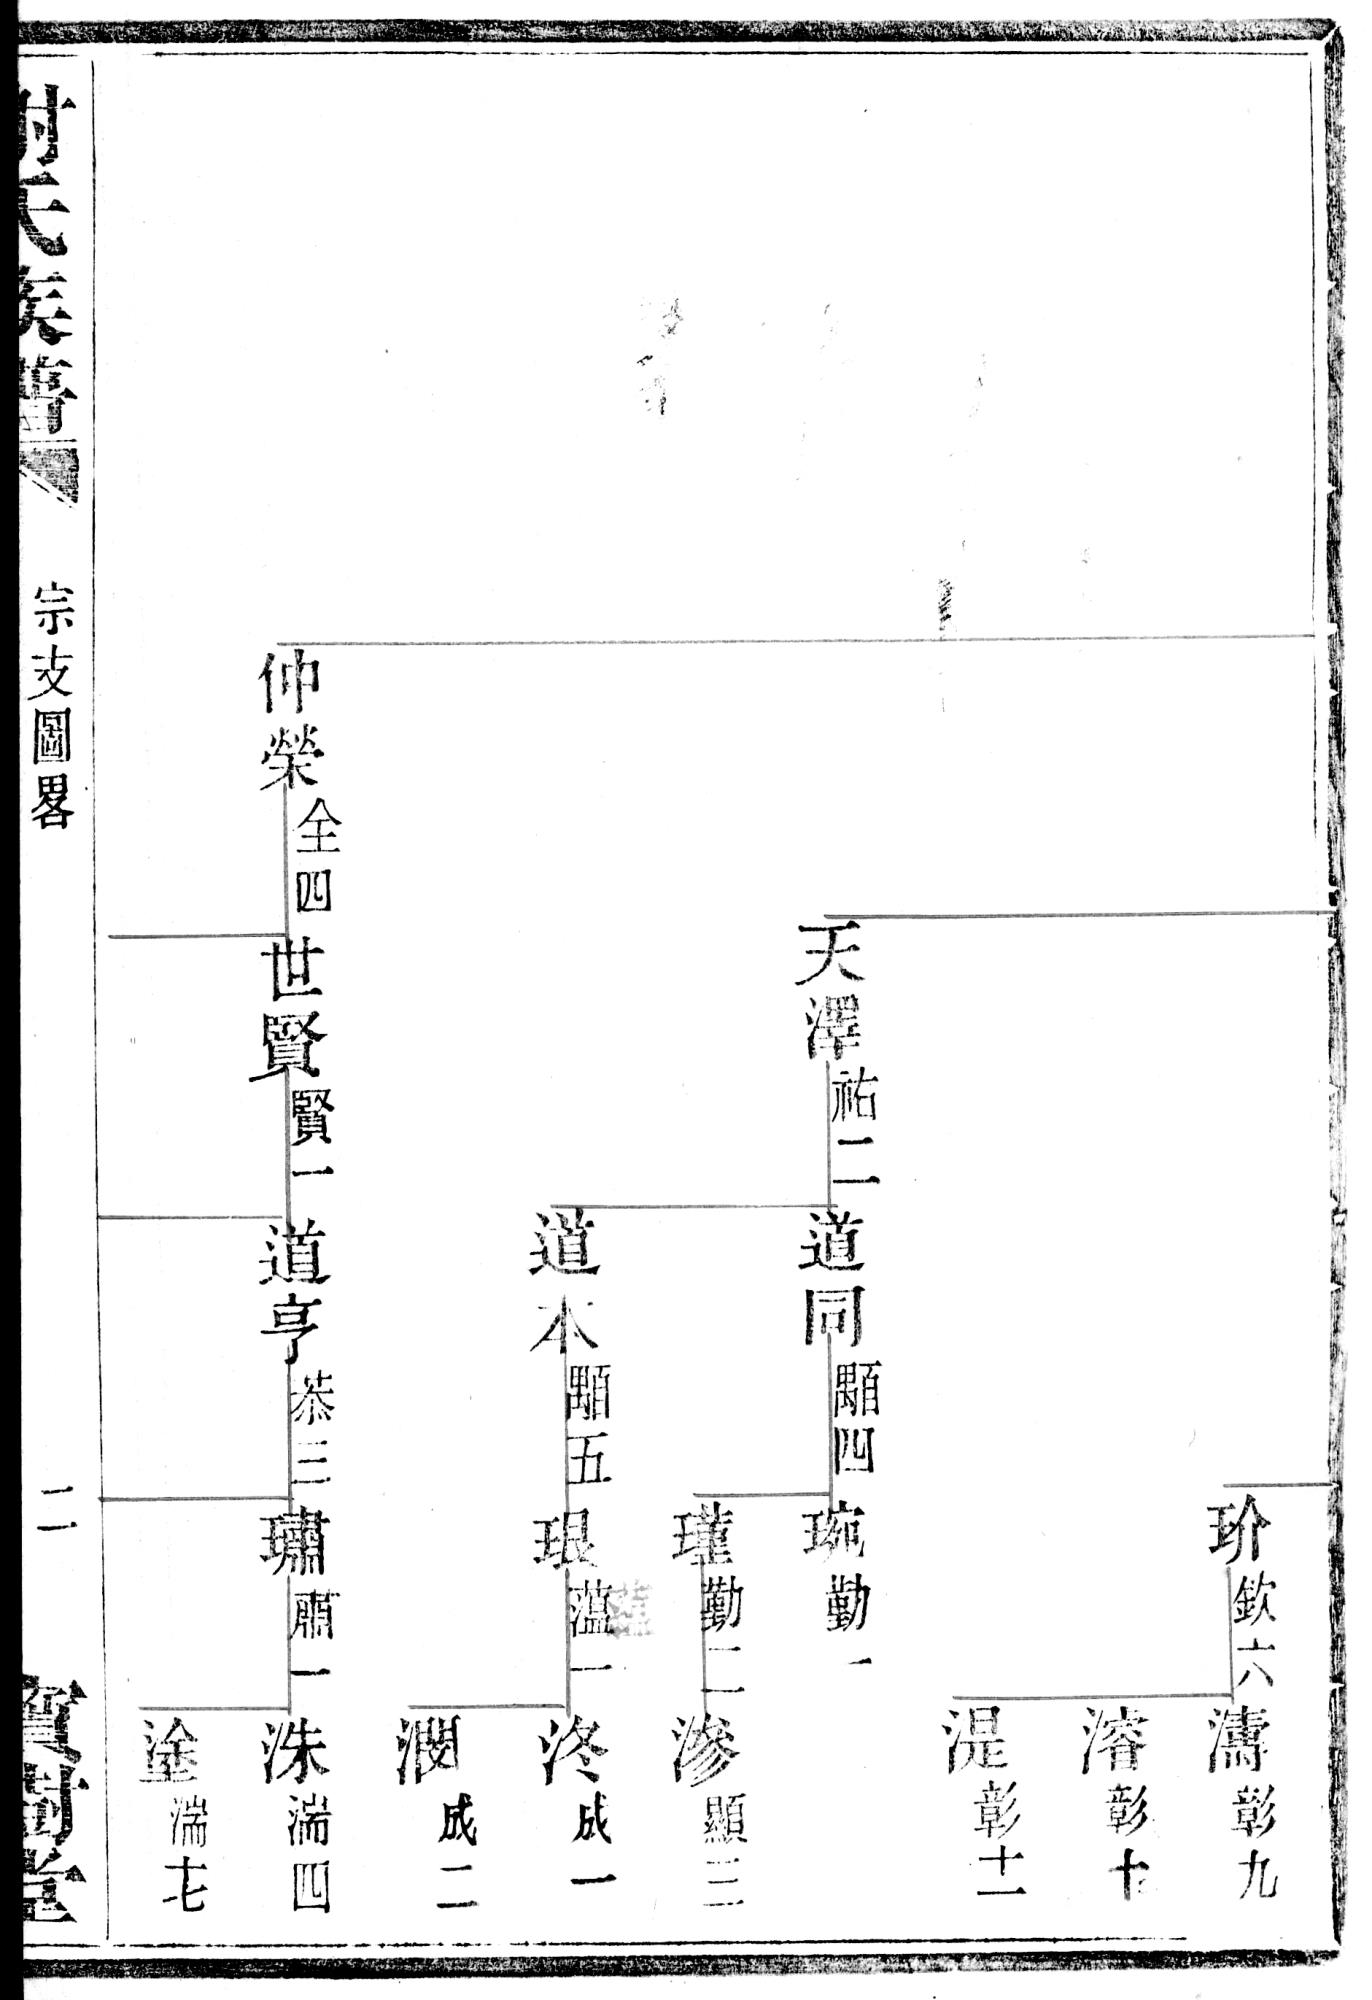 玠欽六
濤彰九
濬彰十
湜彰十一
天澤祐二
道同顯四
琬勤一
瑾勤二
滲顯三
道本顯五
珢蘊一
洛成一
濶成二
仲榮全四
世賢賢一
道亨恭三
璛肅一
洙湍四
塗湍七
謝氏族譜
宗支圖畧
二
寶樹堂